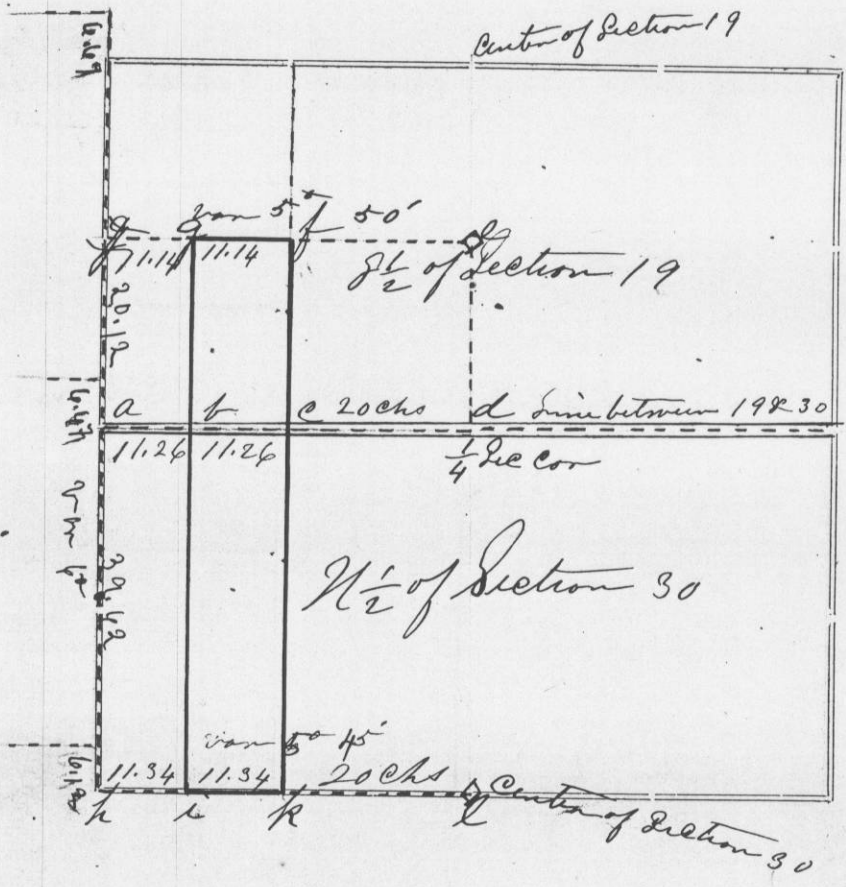 Center of Section 19
6.69
van 5° 50'
g q f e
11.14 11.14
S ½ of Section 19
20.12
6.47
a b c 20 chs d Line between 19 & 30
11.26 11.26
¼ Sec Cor
39.42
N ½ of Section 30
van 5° 45'
11.34 11.34 20 chs
h i k l
Center of Section 30